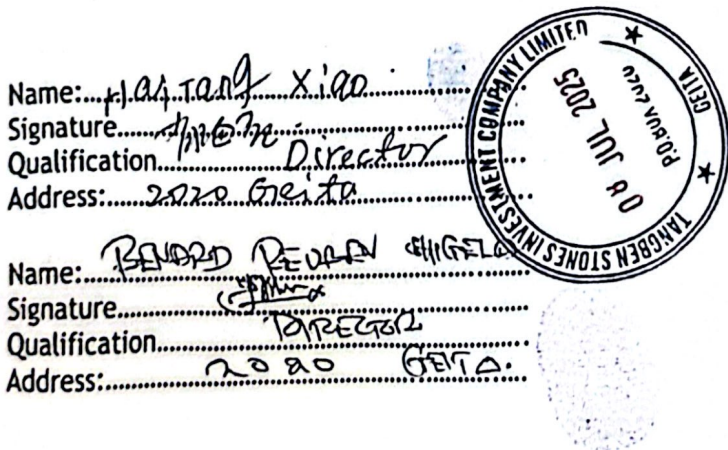 Name: Haitang Xiao
Signature
Qualification Director
Address: 2020 Geita
Name: BENARD REUBEN CHIGELA
Signature
Qualification DIRECTOR
Address: 2020 GEITA.
TANGBEN STONES INVESTMENT COMPANY LIMITED
★ GEITA ★
08 JUL 2025
P.O.BOX 2020